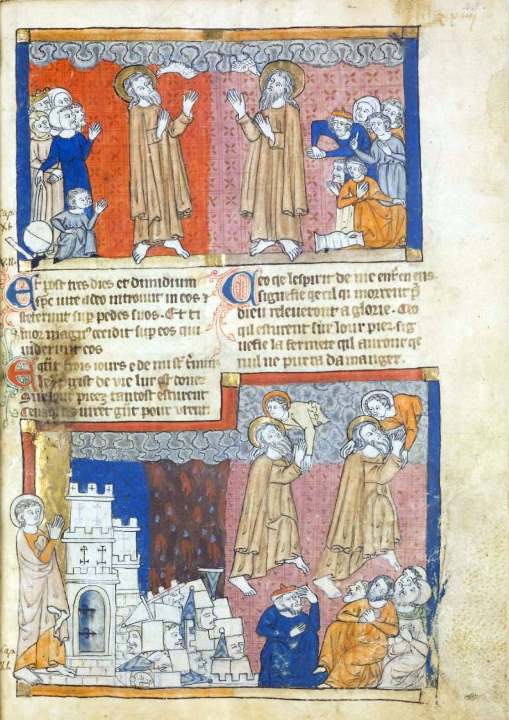 Et post tres dies et dimidium
spc uite a deo introiuit in eos &
steterunt sup pedes suos. Et ti
mor magn cecidit sup eos qui
uiderunt eos
E qnt trois iours e de mi st
de vie lur est donez
Sur lour piez tantost esturent
uirent gnt pour urent
Ceo qe lespirit de vie en eus
signefie qe cil qi morrent p
dieu releueront a glorie. Ceo
qil esturent sur lour piez sig
nefie la fermete qil auront qe
nul ne purra damager.